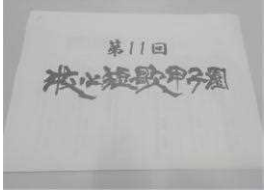 第11回
牧水短歌甲子園